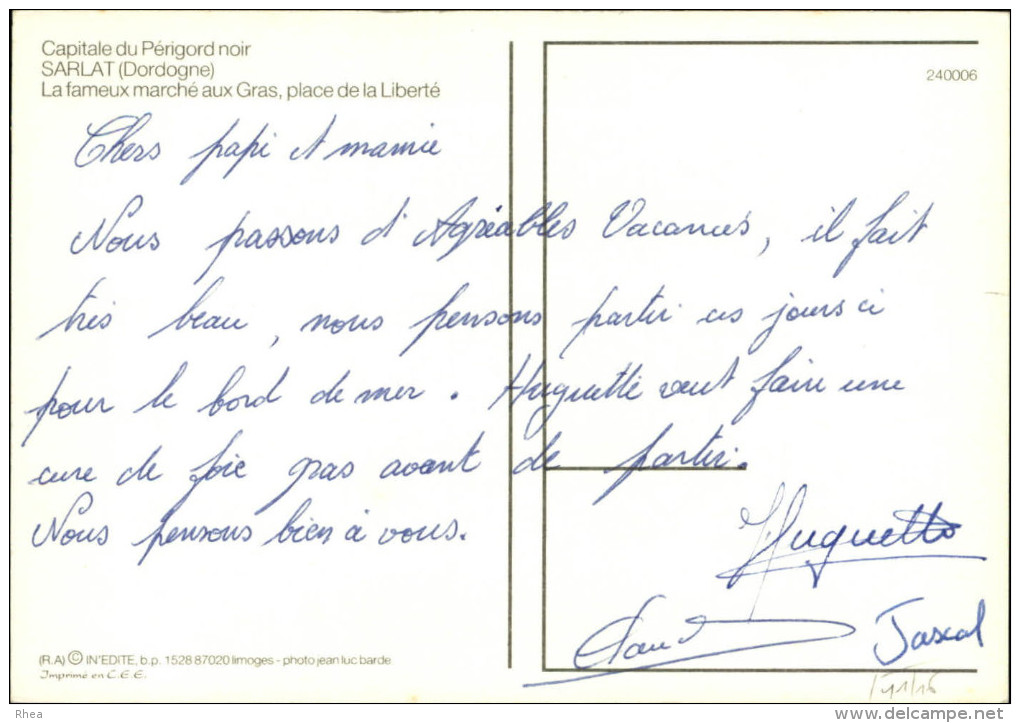 Capitale du Périgord noir
SARLAT (Dordogne)
La fameux marché aux Gras, place de la Liberté
240006
Chers papi et mamie
Nous passons d'Agréables Vacances, il fait
très beau, nous pensons partir ces jours ci
pour le bord de mer. Huguette veut faire une
cure de foie gras avant de partir.
Nous pensons bien à vous.
Huguette
Pascal
(R.A) © IN'EDITE, b.p. 1528 87020 limoges - photo jean luc barde
Imprimé en C.E.E.
Rhea
www.delcampe.net